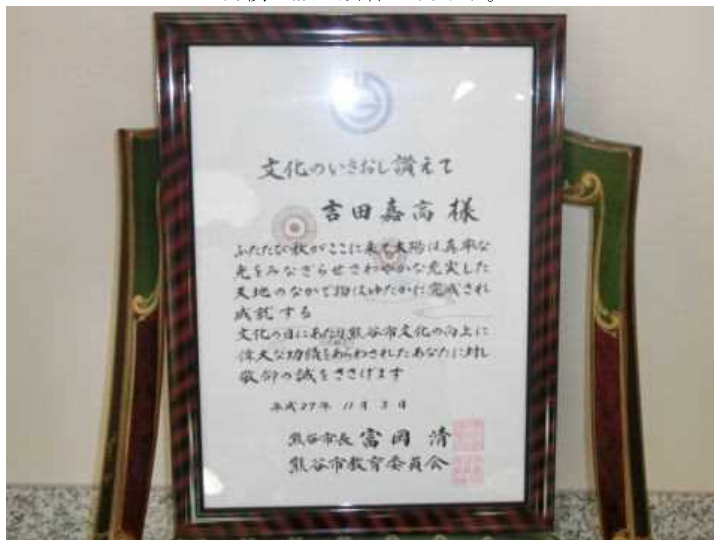 文化のいさおし讃えて
吉田嘉高様
ふたたび秋がここに来て太陽は真率な
光をみなぎらせさわやかな充実した
天地のなかで物はゆたかに完成され
成就する
文化の日にあたり熊谷市文化の向上に
偉大な功績をあらわされたあなたに対し
敬仰の誠をささげます
平成27年 11月 3日
熊谷市長 富岡 清
熊谷市教育委員会